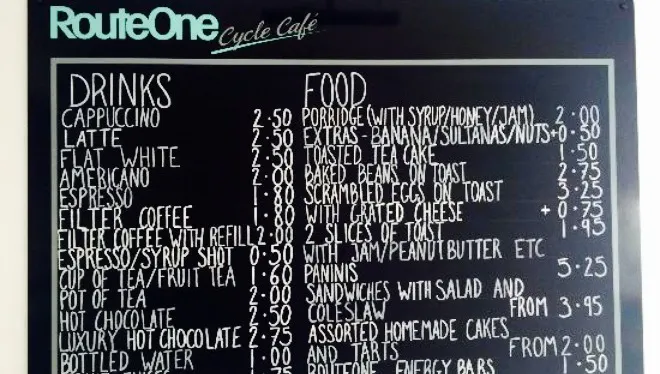 RouteOne Cycle Café
DRINKS
CAPPUCCINO 2.50
LATTE 2.50
FLAT WHITE 2.50
AMERICANO 2.00
ESPRESSO 1.80
FILTER COFFEE 1.80
FILTER COFFEE WITH REFILL 2.00
ESPRESSO/SYRUP SHOT 0.50
CUP OF TEA/FRUIT TEA 1.60
POT OF TEA 2.00
HOT CHOCOLATE 2.50
LUXURY HOT CHOCOLATE 2.75
BOTTLED WATER 1.00
FOOD
PORRIDGE (WITH SYRUP/HONEY/JAM) 2.00
EXTRAS - BANANA/SULTANAS/NUTS +0.50
TOASTED TEA CAKE 1.50
BAKED BEANS ON TOAST 2.75
SCRAMBLED EGGS ON TOAST 3.25
WITH GRATED CHEESE +0.75
2 SLICES OF TOAST 1.95
WITH JAM/PEANUT BUTTER ETC
PANINIS 5.25
SANDWICHES WITH SALAD AND
COLESLAW FROM 3.95
ASSORTED HOMEMADE CAKES
AND TARTS FROM 2.00
ROUTEONE ENERGY BARS 1.50